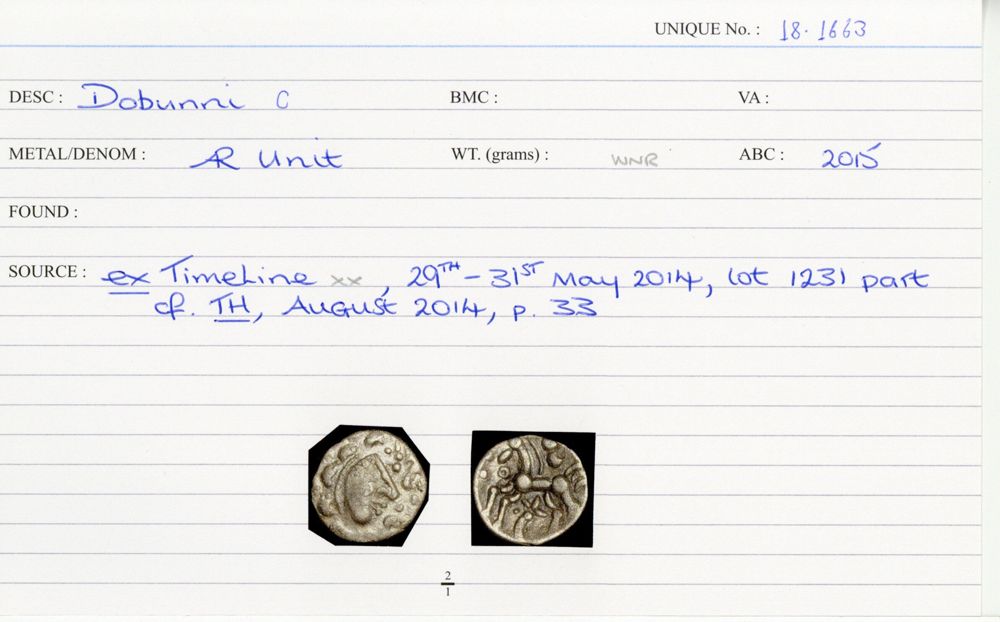 UNIQUE No. : 18.1663
DESC : Dobunni C BMC : VA :
METAL/DENOM : AR Unit WT. (grams) : WNR ABC : 2015
FOUND :
SOURCE : ex TimeLine xx, 29TH - 31ST May 2014, lot 1231 part
cf. TH, August 2014, p. 33
2
1